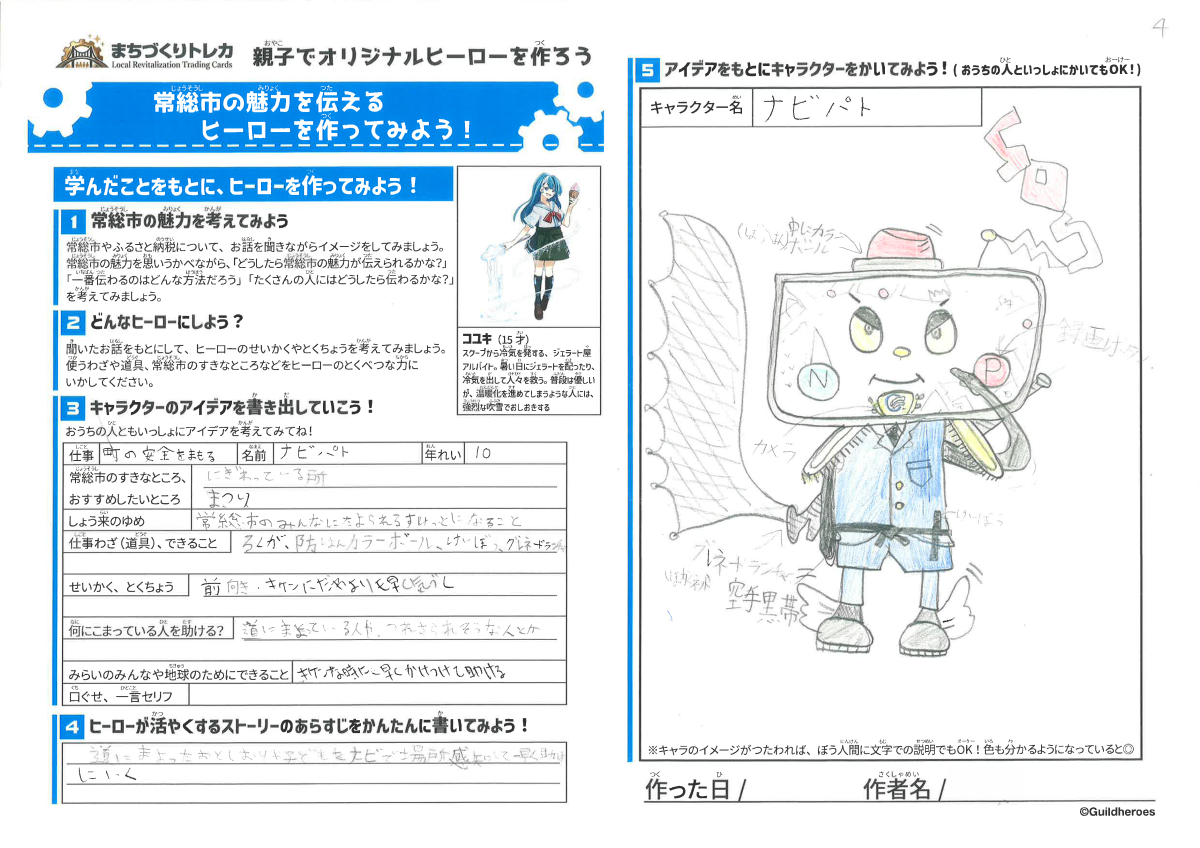 4
まちづくりトレカ
Local Revitalization Trading Cards
親子でオリジナルヒーローを作ろう
常総市の魅力を伝える
ヒーローを作ってみよう！
学んだことをもとに、ヒーローを作ってみよう！
1 常総市の魅力を考えてみよう
常総市やふるさと納税について、お話を聞きながらイメージをしてみましょう。
常総市の魅力を思いうかべながら、「どうしたら常総市の魅力が伝えられるかな？」
「一番伝わるのはどんな方法だろう」「たくさんの人にはどうしたら伝わるかな？」
を考えてみましょう。
2 どんなヒーローにしよう？
聞いたお話をもとにして、ヒーローのせいかくやとくちょうを考えてみましょう。
使うわざや道具、常総市のすきなところなどをヒーローのとくべつな力に
いかしてください。
ココユキ（15才）
スクープから冷気を発する、ジェラート屋
アルバイト。暑い日にジェラートを配ったり、
冷気を出して人々を救う。普段は優しい
が、温暖化を進めてしまうような人には、
強烈な吹雪でおしおきする
3 キャラクターのアイデアを書き出していこう！
おうちの人ともいっしょにアイデアを考えてみてね！
仕事 町の安全をまもる 名前 ナビパト 年れい 10
常総市のすきなところ、 にぎわっている所
おすすめしたいところ まつり
しょう来のゆめ 常総市のみんなにたよられるすけっとになること
仕事わざ（道具）、できること ろくが、防はんカラーボール、けいぼう、グレネードラン
せいかく、とくちょう 前向き・キケンにだれよりも早く
何にこまっている人を助ける？ 道にまよっている人や、つれさられそうな人とか
みらいのみんなや地球のためにできること キケンな時に早くかけつけて助ける
口ぐせ、一言セリフ
4 ヒーローが活やくするストーリーのあらすじをかんたんに書いてみよう！
道にまよったおとしよりや子どもをナビで場所感知して早く助け
にいく
5 アイデアをもとにキャラクターをかいてみよう！（おうちの人といっしょにかいてもOK！）
キャラクター名 ナビパト
中にカラー
ボール
録画ボタン
N
P
カメラ
けいぼう
グレネードランチャー
空手黒帯
※キャラのイメージがつたわれば、ぼう人間に文字での説明でもOK！色も分かるようになっていると◎
作った日 /
作者名 /
©Guildheroes